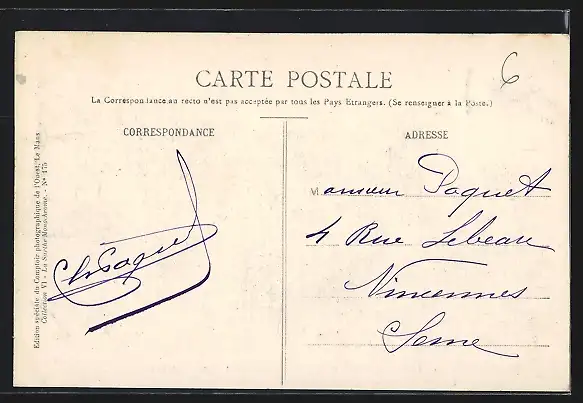 6
CARTE POSTALE
La Correspondance au recto n'est pas acceptée par tous les Pays Etrangers. (Se renseigner à la Poste.)
CORRESPONDANCE
ADRESSE
Edition spéciale du Comptoir photographique de l'Ouest, Le Mans
Collection VI - La Sarthe Monochrome. - N° 175
Ch Paquet
Monsieur Paquet
4 Rue Lebeau
Vincennes
Seine